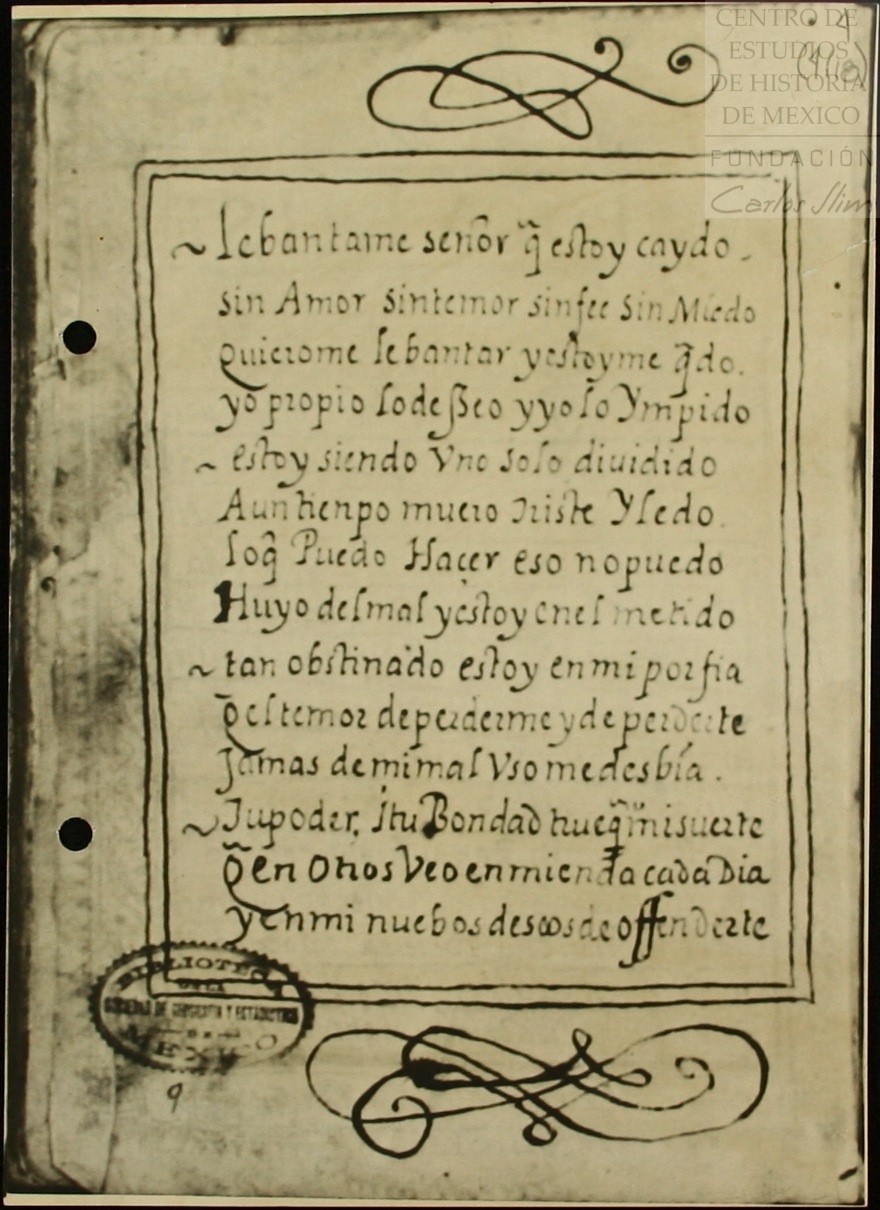 CENTRO DE
ESTUDIOS
DE HISTORIA
DE MEXICO
FUNDACIÓN
Carlos Slim
4
~ lebantame señor q̃ estoy caydo.
sin Amor sin temor sin fee sin Miedo
quierome lebantar y estoyme q̃do.
yo propio lo deßeo y yo lo Ympido
~ estoy siendo Vno solo diuidido
A un tienpo muero triste Y ledo.
lo q̃ Puedo Haçer eso no puedo
Huyo del mal y estoy en el metido
~ tan obstinado estoy en mi porfia
q̃ el temor de perderme y de perderte
Jamas de mi mal Vso me desbía.
~ Tu poder, y tu Bondad trueq̃ mi suerte
q̃ en Otros Veo enmienda cada Dia
y en mi nuebos deseos de offenderte
BIBLIOTECA
DE LA
SOCIEDAD DE GEOGRAFIA Y ESTADISTICA
DE
MEXICO
9